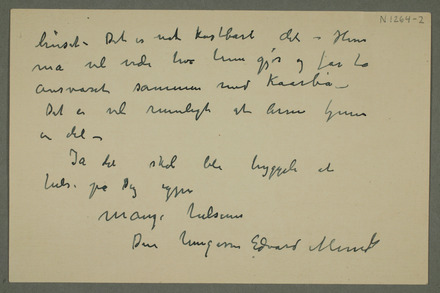 N 1264-2
huset - Det er nok kostbart det - Hun
må vel vide hva hun gjør og får ta
ansvaret sammen med Kaarbø -
Det er vel rimeligt at hun
er det -
Ja det skal bli hyggeli at
hilse på Dig igjen
Mange hilsener
Din hengivne Edvard Munch